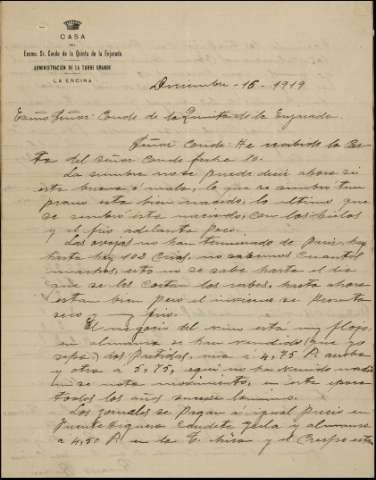 CASA
DEL
Excmo. Sr. Conde de la Quinta de la Enjarada
ADMINISTRACIÓN DE LA TORRE GRANDE
LA ENCINA
Diciembre - 16 - 1919
Exmo Señor Conde de la Quinta de la Enjarada
Señor Conde: He recibido la Car-
ta del señor Conde fecha 10.
La siembra no se puede decir ahora si
esta buena o mala, lo que se sembro tem
prano esta bien nacido, lo ultimo que
se sembro esta naciendo, con los hielos
y el frio adelanta poco.
Las ovejas no han terminado de parir, hay
hasta hoy 102 crias, no sabemos cuantos
machos, esto no se sabe hasta el dia
que se les cortan los rabos, hasta ahora
estan bien pero el invierno se presenta
seco y muy frio.
El negocio del vino está muy flojo,
en almansa se han vendido (que yo
sepa) dos partidas, una a 4,75 P. arroba
y otra a 5,75, aqui no ha vendido nadie
ni se nota movimiento, en esta epoca
todos los años sucede lo mismo.
Los jornales se pagan a igual precio en
Fuente higuera Caudete Yecla y almansa
a 4,50 P. en la T. y el Crespo esta